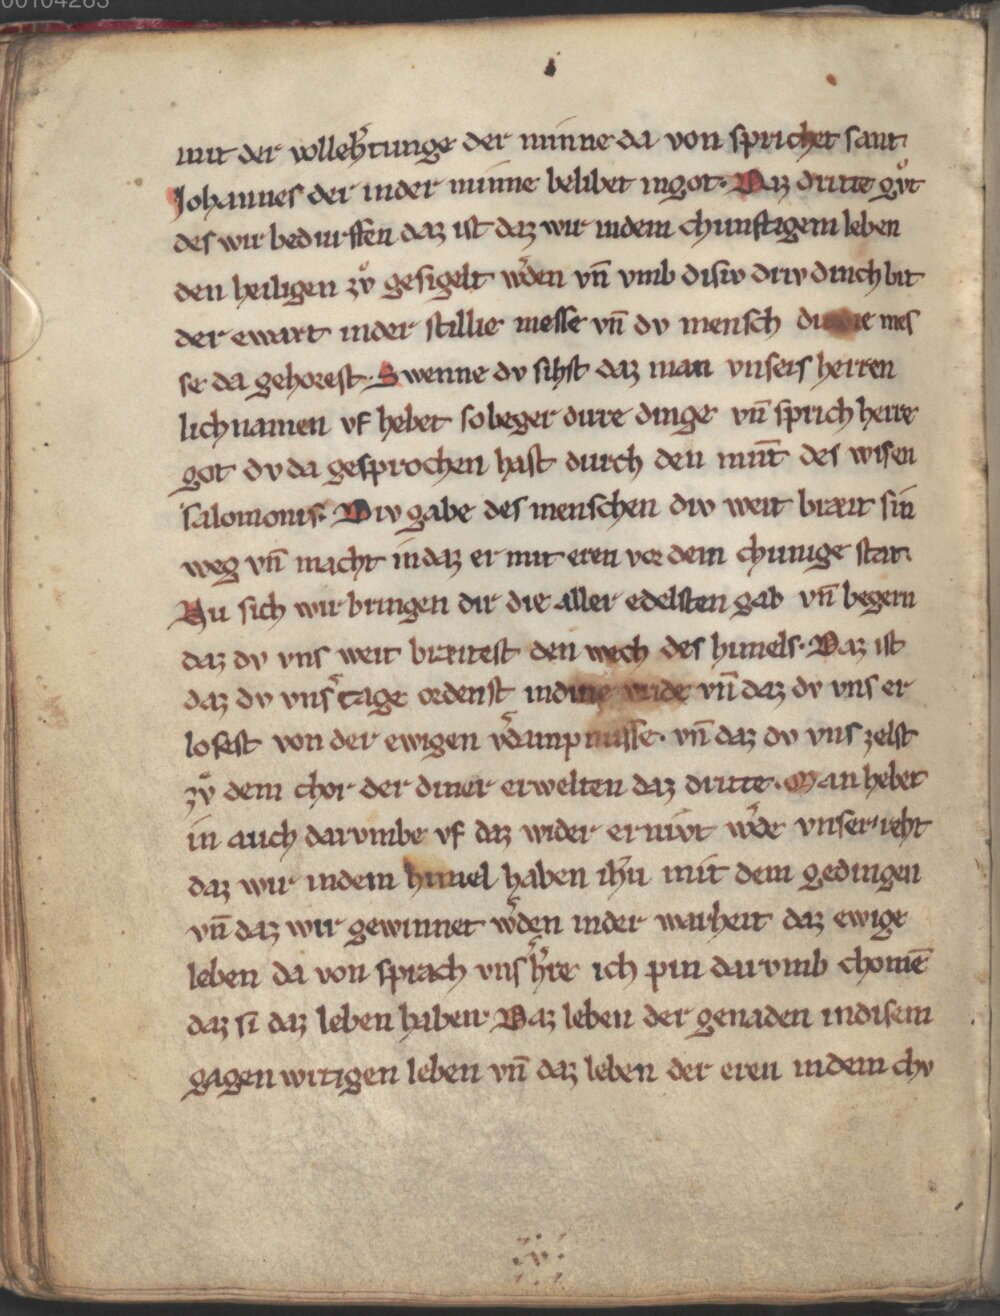 00104263
mit der vollehtunge der minne da von sprichet sant
Johannes der inder minne belibet ingot. Daz dritte gůt
des wir bedurffen daz ist daz wir indem chunftigem leben
den heiligen zů gesigelt w̉den vn̄ vmb disiv driv dinch bit
der ewart inder stillie messe vn̄ dv mensch die mes
se da gehorest. Swenne dv sihst daz man vnsers herren
lichnamen vf hebet so beger dire dinge vn̄ sprich herre
got dv da gesprochen hast durch den mūt des wisen
salomonis. Div gabe des menschen div weit brait sin
weg vn̄ macht in daz er mit eren vor dem chunige stat.
Nu sich wir bringen dir die aller edelsten gab vn̄ begern
daz dv vns weit braitest den wech des himels. Daz ist
daz dv vns̉ tage ordenst indine vride vn̄ daz dv vns er
losest von der ewigen v̉dampnusse. vn̄ daz dv vns zelst
zů dem chor der diner erwelten daz dritte. Man hebet
in auch darvmbe vf daz wider ernivt w̉de vnser reht
daz wir indem himel haben ih̄n mit dem gedingen
vn̄ daz wir gewinnet w̉den inder warheit daz ewige
leben da von sprach vns̉ h̉re ich pin darvmb chomē
daz si daz leben haben. Daz leben der genaden indisem
gagenwirtigen leben vn̄ daz leben der eren indem chv
.iv.